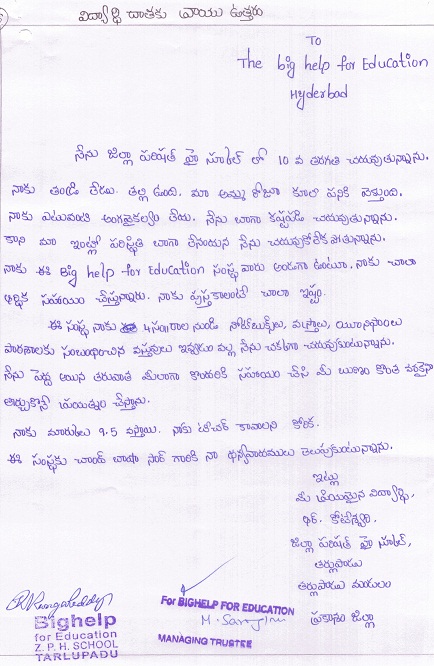 విద్యార్థి దాతకు వ్రాయు ఉత్తరం
TO
The big help for Education
Hyderbad
నేను జిల్లా పరిషత్ హై స్కూల్ లో 10 వ తరగతి చదువుతున్నాను.
నాకు తండ్రి లేడు. తల్లి ఉంది. మా అమ్మ రోజూ కూలి పనికి వెళ్తుంది.
నాకు ఎటువంటి అంగవైకల్యం లేదు. నేను బాగా కష్టపడి చదువుతున్నాను.
కాని మా ఇంట్లో పరిస్థితి బాగా లేనందున నేను చదువుకోలేక పోతున్నాను.
నాకు ఈ Big help for Education సంస్థ వారు అండగా ఉంటూ. నాకు చాలా
ఆర్థిక సహాయం చేస్తున్నారు. నాకు పుస్తకాలంటే చాలా ఇష్టం.
ఈ సంస్థ నాకు 4 సం॥రాల నుండి నోట్‌బుక్స్‌లు, వస్త్రాలు, యూనిఫాంలు
పాఠశాలకు సంబంధించిన వస్తువులు ఇవ్వడం వల్ల నేను చక్కగా చదువుకుంటున్నాను.
నేను పెద్ద అయిన తరువాత మీలాగా కొందరికి సహాయం చేసి మీ ఋణం కొంత వరకైనా
తీర్చుకొనే ప్రయత్నం చేస్తాను.
నాకు మార్కులు 9.5 వస్తాయి. నాకు టీచర్ కావాలని కోరిక.
ఈ సంస్థకు చాంద్ బాషా సార్ గారికి నా ధన్యవాదములు తెలుపుకుంటున్నాను.
ఇట్లు
మీ ప్రియమైన విద్యార్థి,
కోటేశ్వరి,
జిల్లా పరిషత్ హై స్కూల్,
తర్లుపాడు
తర్లుపాడు మండలం
ప్రకాశం జిల్లా
Bighelp
for Education
Z. P. H. SCHOOL
TARLUPADU
For BIGHELP FOR EDUCATION
MANAGING TRUSTEE